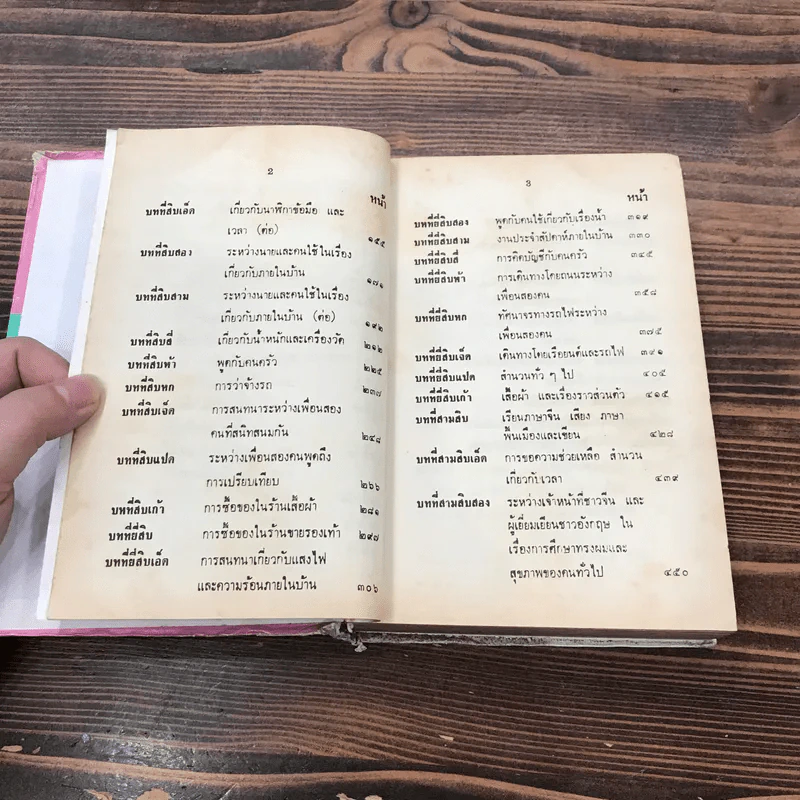 2
หน้า
บทที่สิบเอ็ด เกี่ยวกับนาฬิกาข้อมือ และ
เวลา (ต่อ) ๑๕๕
บทที่สิบสอง ระหว่างนายและคนใช้ในเรื่อง
เกี่ยวกับภายในบ้าน ๑๗๑
บทที่สิบสาม ระหว่างนายและคนใช้ในเรื่อง
เกี่ยวกับภายในบ้าน (ต่อ) ๑๙๒
บทที่สิบสี่ เกี่ยวกับน้ำหนักและเครื่องวัด ๒๑๒
บทที่สิบห้า พูดกับคนครัว ๒๒๕
บทที่สิบหก การว่าจ้างรถ ๒๓๗
บทที่สิบเจ็ด การสนทนาระหว่างเพื่อนสอง
คนที่สนิทสนมกัน ๒๔๘
บทที่สิบแปด ระหว่างเพื่อนสองคนพูดถึง
การเปรียบเทียบ ๒๖๖
บทที่สิบเก้า การซื้อของในร้านเสื้อผ้า ๒๘๑
บทที่ยี่สิบ การซื้อของในร้านขายรองเท้า ๒๙๗
บทที่ยี่สิบเอ็ด การสนทนาเกี่ยวกับแสงไฟ
และความร้อนภายในบ้าน ๓๐๖
3
หน้า
บทที่ยี่สิบสอง พูดกับคนใช้เกี่ยวกับเรื่องน้ำ ๓๑๙
บทที่ยี่สิบสาม งานประจำสัปดาห์ภายในบ้าน ๓๓๐
บทที่ยี่สิบสี่ การคิดบัญชีกับคนครัว ๓๔๕
บทที่ยี่สิบห้า การเดินทางโดยถนนระหว่าง
เพื่อนสองคน ๓๕๘
บทที่ยี่สิบหก ทัศนาจรทางรถไฟระหว่าง
เพื่อนสองคน ๓๗๕
บทที่ยี่สิบเจ็ด เดินทางโดยเรือยนต์และรถไฟ ๓๙๑
บทที่ยี่สิบแปด สำนวนทั่ว ๆ ไป ๔๐๕
บทที่ยี่สิบเก้า เสื้อผ้า และเรื่องราวส่วนตัว ๔๑๕
บทที่สามสิบ เรียนภาษาจีน เสียง ภาษา
พื้นเมืองและเขียน ๔๒๘
บทที่สามสิบเอ็ด การขอความช่วยเหลือ สำนวน
เกี่ยวกับเวลา ๔๓๙
บทที่สามสิบสอง ระหว่างเจ้าหน้าที่ชาวจีน และ
ผู้เยี่ยมเยียนชาวอังกฤษ ใน
เรื่องการศึกษาทรงผมและ
สุขภาพของคนทั่วไป ๔๕๐